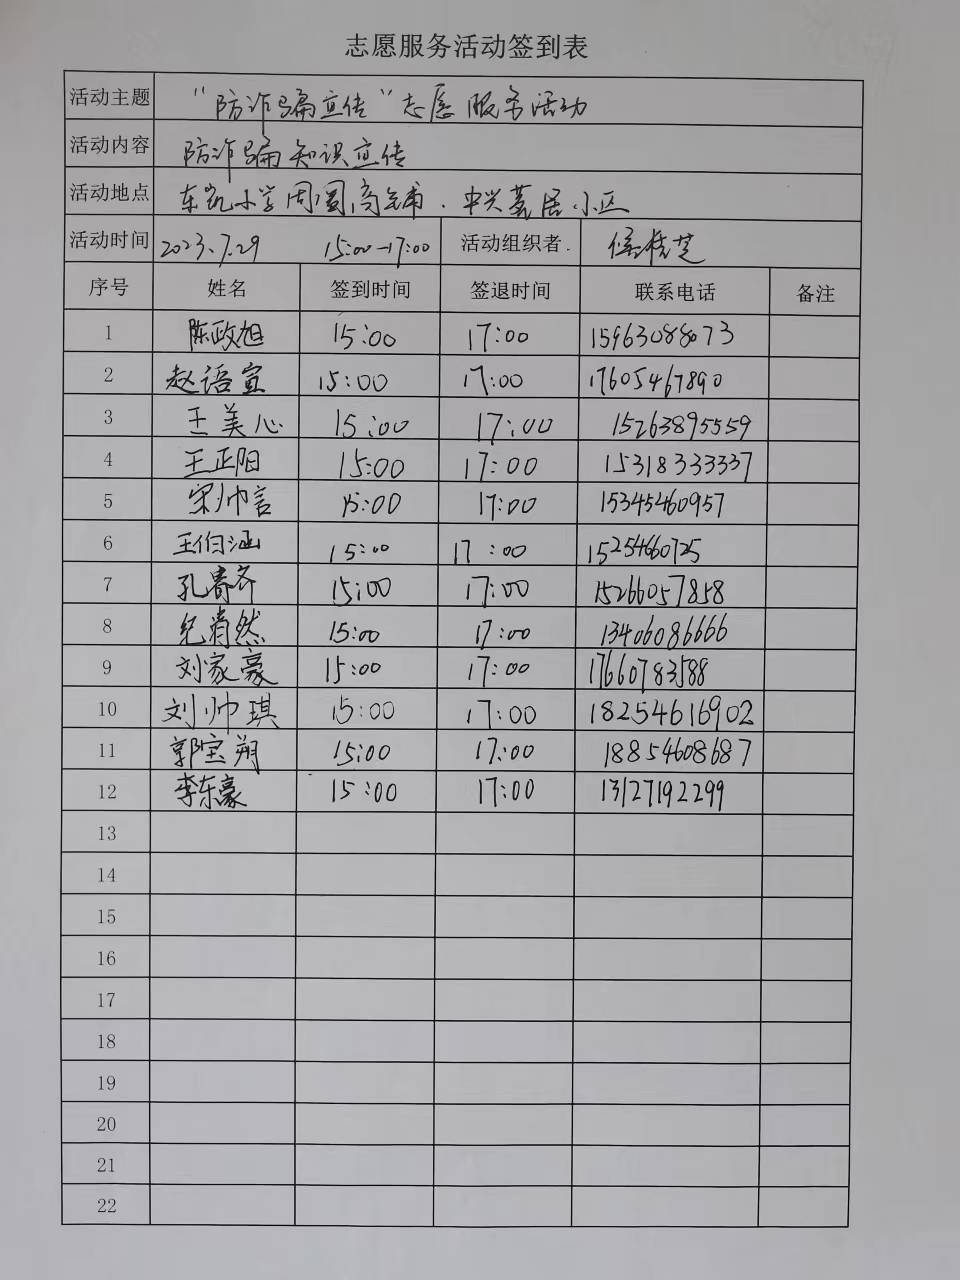 志愿服务活动签到表
活动主题 “防诈骗宣传”志愿服务活动
活动内容 防诈骗知识宣传
活动地点 东凯小学周围商铺.中兴嘉居小区
活动时间 2023.7.29 15:00-17:00 活动组织者.
序号 姓名 签到时间 签退时间 联系电话 备注
1 陈政旭 15:00 17:00 15963088073
2 赵语宣 15:00 17:00 17605467890
3 王美心 15:00 17:00 15263895559
4 王正阳 15:00 17:00 15318333337
5 宋帅言 15:00 17:00 15345460957
6 王伯涵 15:00 17:00 15254660725
7 孔睿齐 15:00 17:00 15266057858
8 纪肖然 15:00 17:00 13406086666
9 刘家豪 15:00 17:00 17660783588
10 刘帅琪 15:00 17:00 18254616902
11 郭宝朔 15:00 17:00 18854608687
12 李东豪 15:00 17:00 13127192299
13
14
15
16
17
18
19
20
21
22